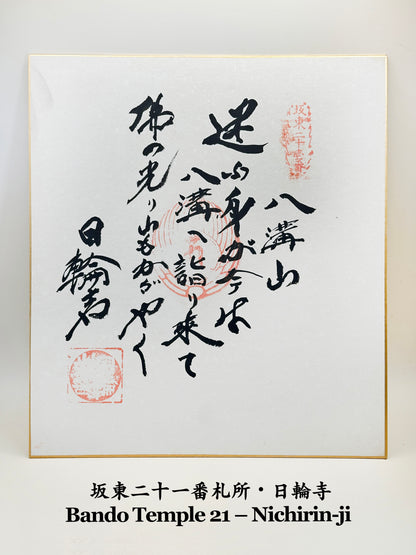 坂東二十一番
八溝山
迷ふ身が今は
八溝へ詣り来て
佛の光り山もかゞやく
日輪寺
坂東二十一番札所・日輪寺
Bando Temple 21 – Nichirin-ji